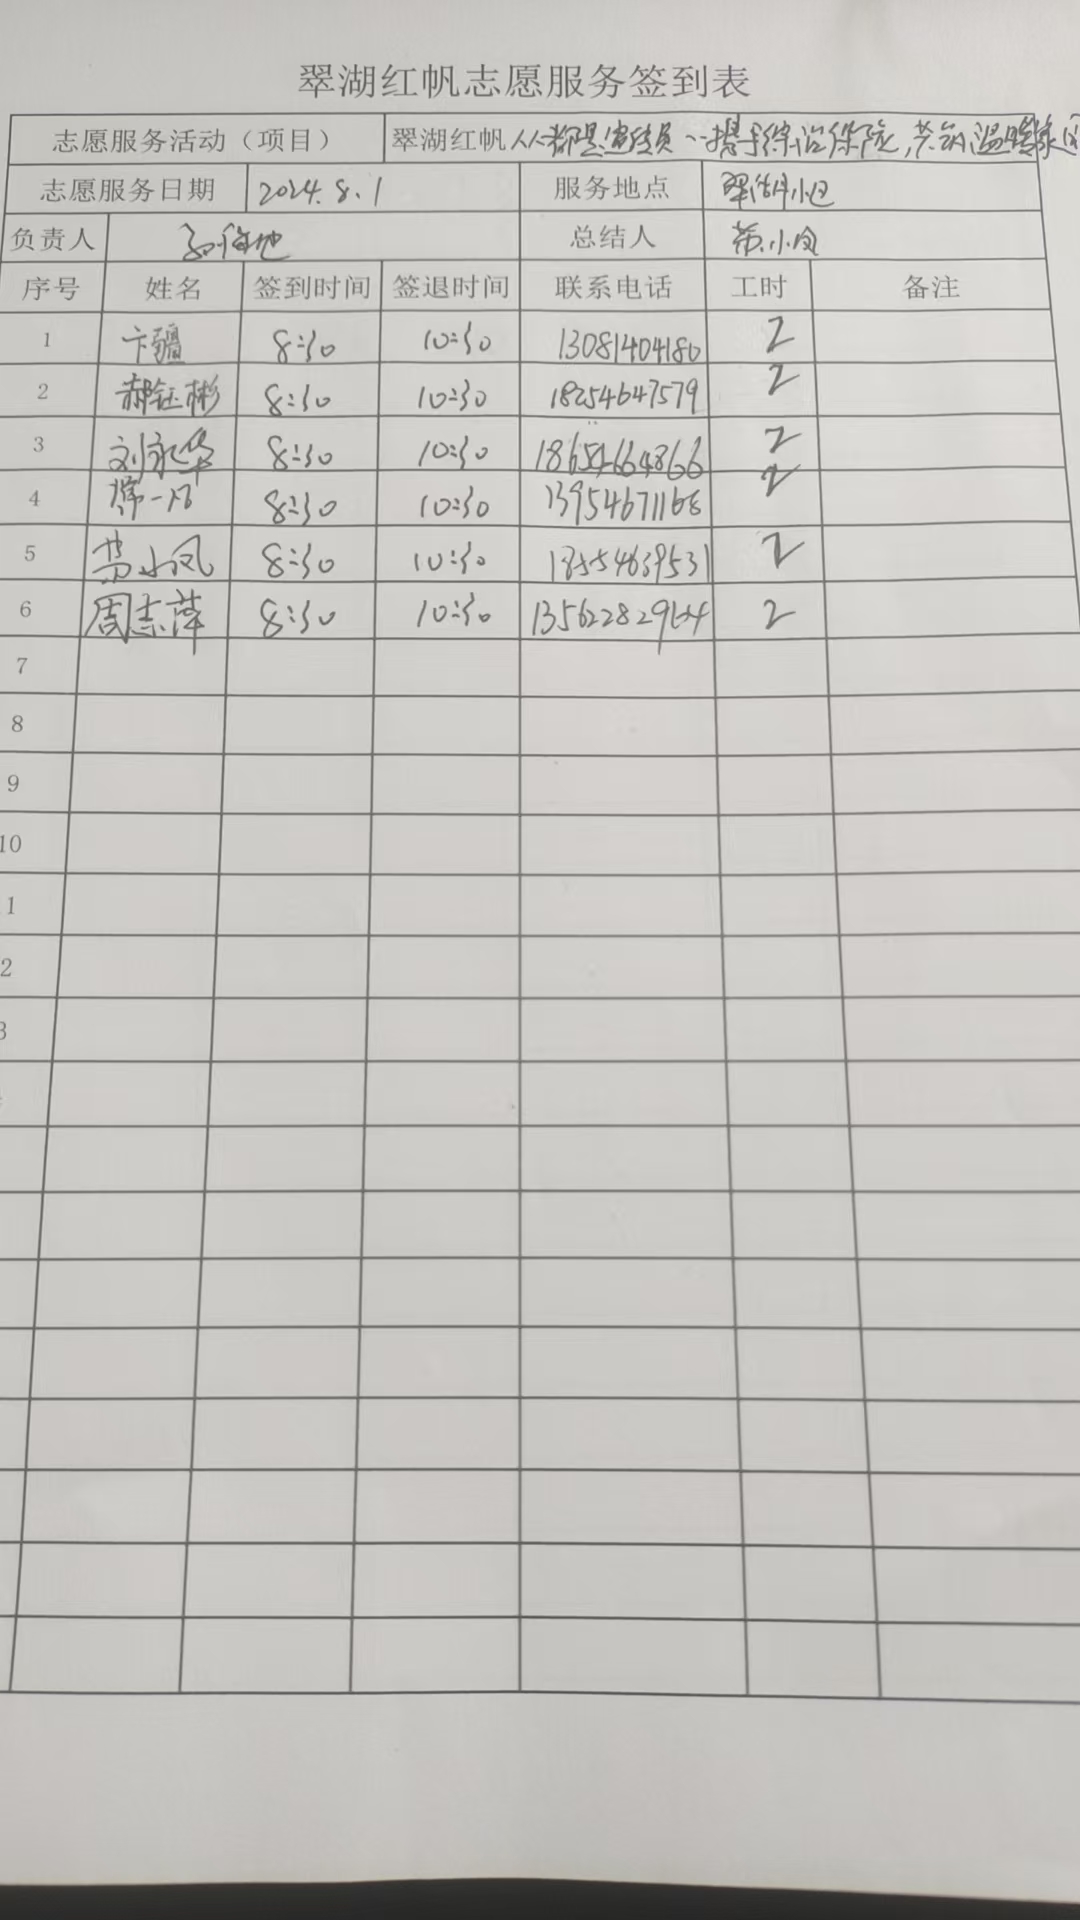 翠湖红帆志愿服务签到表
志愿服务活动（项目） 翠湖红帆人人都是宣传员
志愿服务日期 2024.8.1 服务地点 翠湖小区
负责人 总结人 小凤
序号 姓名 签到时间 签退时间 联系电话 工时 备注
1 卞疆 8:30 10:30 13081404180 2
2 郝钰彬 8:30 10:30 18254647579 2
3 刘永华 8:30 10:30 18654664866 2
4 8:30 10:30 13954671168 2
5 小凤 8:30 10:30 2
6 周志萍 8:30 10:30 2
7
8
9
10
1
2
3